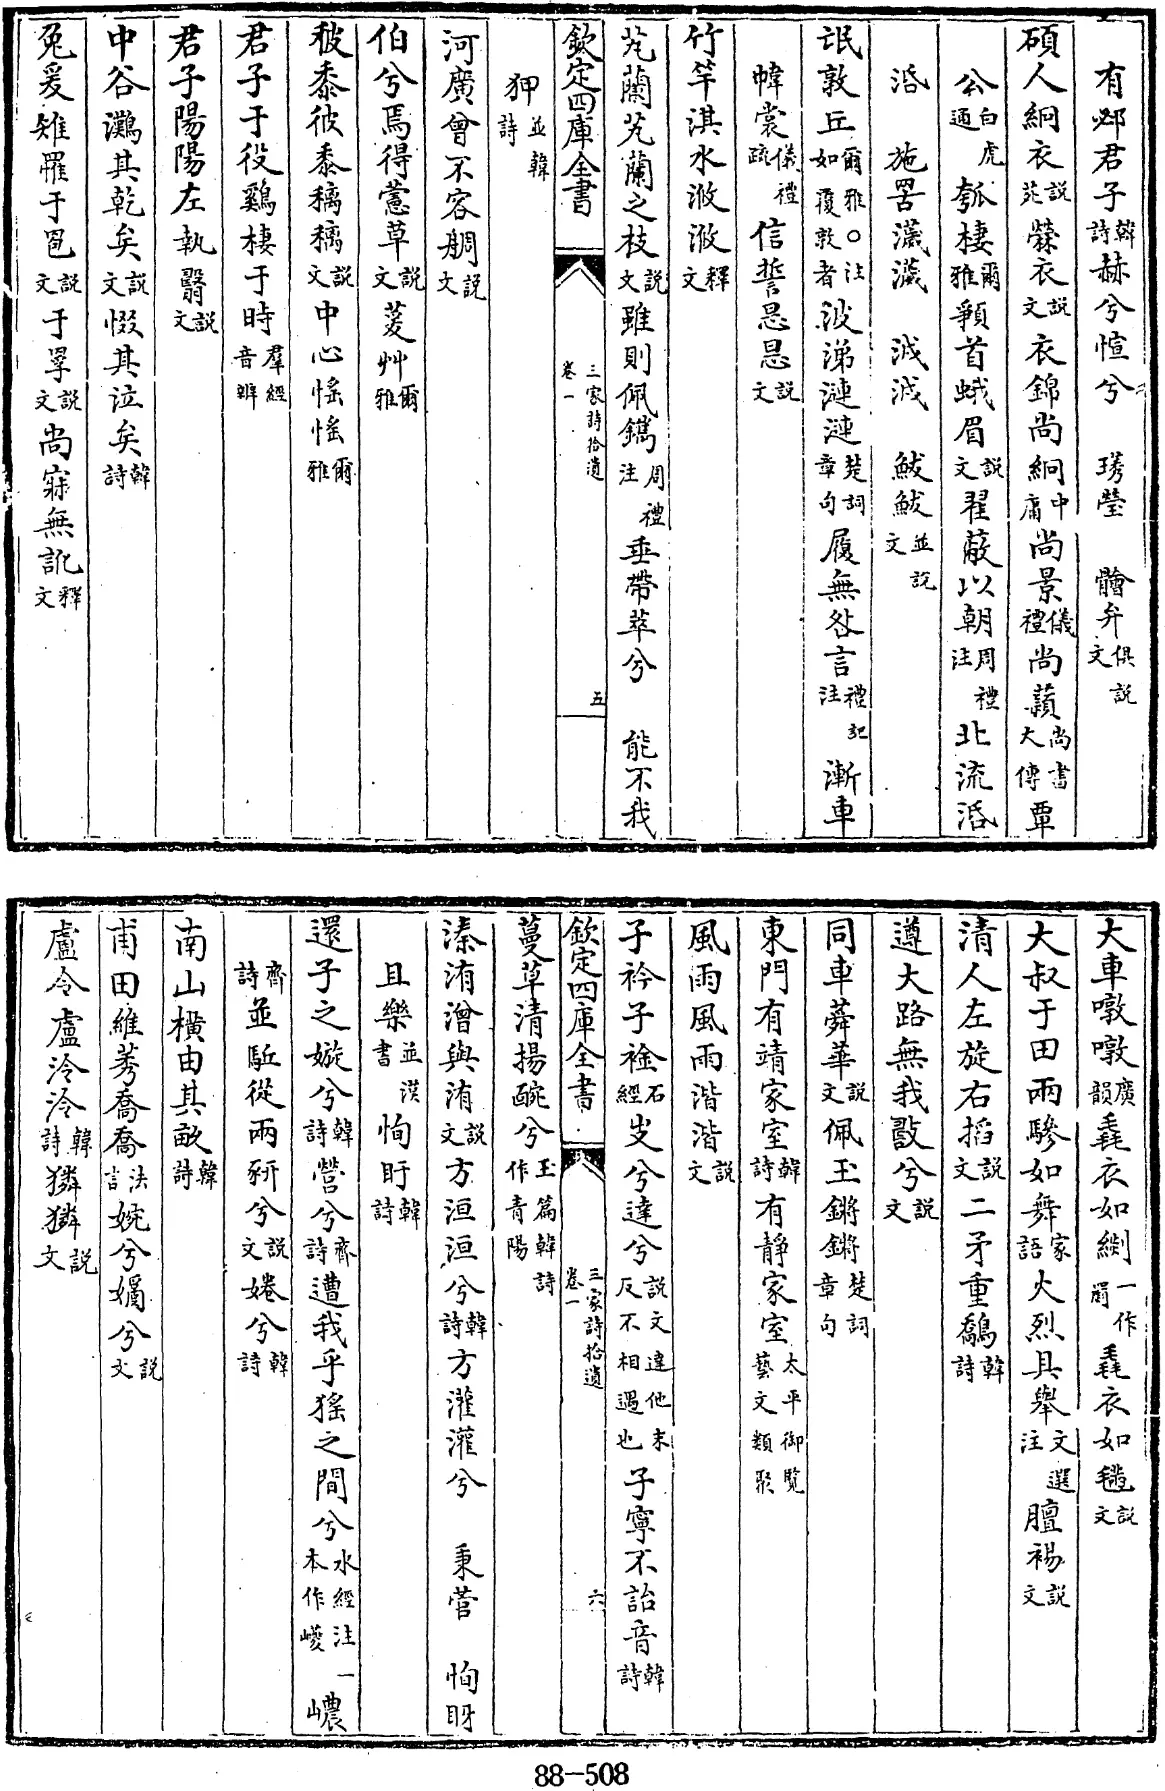 有邲君子韓詩赫兮愃兮 琇瑩 䯤弁俱說文
碩人絅衣說苑檾衣說文衣錦尚絅中庸尚景儀禮尚蘱尚書大傳覃
公白虎通瓠棲爾雅顭首蛾眉說文翟蔽以朝周禮注北流活
活 施罟濊濊 泧泧 鮁鮁並說文
氓敦丘爾雅○注如覆敦者波涕漣漣楚詞章句履無咎言禮記注漸車
幃裳儀禮疏信誓㫜㫜說文
竹竿淇水浟浟釋文
芄蘭芄蘭之枝說文雖則佩鑴周禮注垂帶萃兮 能不我
狎並韓詩
河廣曾不容䑠說文
伯兮焉得藼草說文萲艸爾雅
稷黍彼黍稿稿說文中心愮愮爾雅
君子于役鷄棲于時羣經音辨
君子陽陽左執翳說文
中谷灘其乾矣說文惙其泣矣韓詩
兔爰雉罹于䍖說文于罦說文尚寐無訛釋文
欽定四庫全書
三家詩拾遺
卷一
五
大車噋噋廣韻毳衣如繝一作罽毳衣如𣰦說文
大叔于田兩驂如舞家語火烈具舉文選注膻裼說文
清人左旋右搯說文二矛重鷮韓詩
遵大路無我𢿔兮說文
同車蕣華說文佩玉鏘鏘楚詞章句
東門有靖家室韓詩有靜家室太平御覽藝文類聚
風雨風雨湝湝說文
子衿子裣石經㞢兮達兮說文達他末反不相遇也子寧不詒音韓詩
蔓草清揚䩊兮玉篇韓詩作青陽
溱洧潧與洧說文方洹洹兮韓詩方灌灌兮 秉菅 恂盱
且樂並漢書恂盱韓詩
還子之嫙兮韓詩營兮齊詩遭我乎猺之間兮水經注一本作巙 峱
齊詩並駈從兩豜兮說文婘兮韓詩
南山橫由其畝韓詩
甫田維莠喬喬法言婉兮㜻兮說文
盧令盧泠泠韓詩獜獜說文
欽定四庫全書
三家詩拾遺
卷一
六
88-508